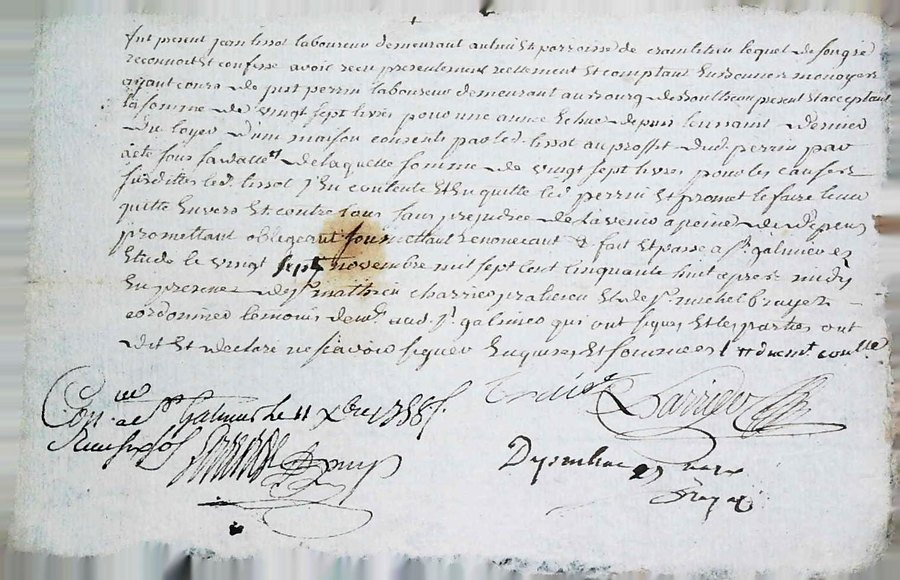 fut present jean tissot laboureur demeurant au lieu et parroisse de craintilieu lequel de son gré
reconnoit et confesse avoir receu presentement reellement et comptant en bonnes monoyes
ayant cours de just perrin laboureur demeurant au bourg present et acceptant
la somme de vingt sept livres pour une année echue depuis dernier
du loyer d'une maison consenti par led. tissot au proffit dud. perrin par
acte sous sa datte de laquelle somme de vingt sept livres pour les causes
susdittes led. tissot s'en contente et en quitte led. perrin et promet le faire tenir
quitte envers et contre tous sans prejudice de l'avenir a peine de depens
promettant obligeant soumettant renoncant &c fait et passé a st. galmier en
etude le vingt sept novembre mil sept cent cinquante huit apres midy
en presence de sr. mathieu charrier praticien et de sr. michel brayer
cordonnier temoins dem.t aud. st. galmier qui ont signes et les parties ont
dit et declaré ne sçavoir signer enquises et sommées
Con.lé a St Galmier le 11 Xbre 1758